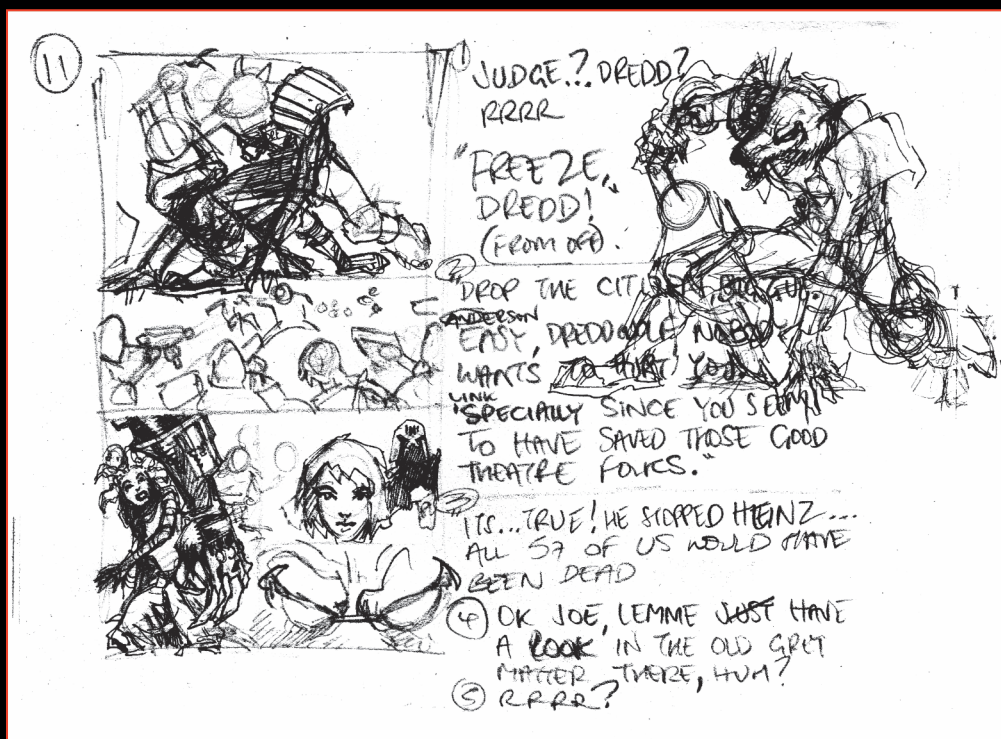 11
1
JUDGE..? DREDD?
RRRR
"FREEZE,
DREDD!"
(FROM OFF).
2
"DROP THE CITIZEN,
ANDERSON
EASY, DREDDWOLF, NOBODY
WANTS TO HURT YOU.
LINK
'SPECIALLY SINCE YOU SEEM
TO HAVE SAVED THOSE GOOD
THEATRE FOLKS."
3
ITS...TRUE! HE STOPPED HEINZ...
ALL 57 OF US WOULD HAVE
BEEN DEAD
4 OK JOE, LEMME JUST HAVE
A LOOK IN THE OLD GREY
MATTER THERE, HUM?
5 RRRR?